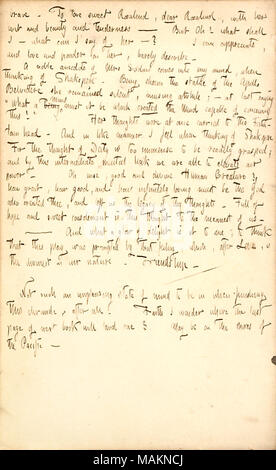 brave. To love sweet Rosalind, dear Rosalind, with her
wit and beauty and tenderness — But Oh! what shall
I — what can I say of her — ? I can appreciate,
and love and ponder for her; barely describe —
A noble anecdote of Mrs Siddons comes into my mind, when
thinking of Shakspere. Being shown the statue of the Apollo
Belvedere she remained silent, musing awhile; — at last saying
what a being must it be which created the mind capable of
this! Her thoughts were at once carried to the
fountain head. And in like manner I feel when thinking of Shakspere
For the thought of Deity is too immense to be readily grasped;
and by this intermediate mortal help we are able to
power — Oh wise, good and divine Human Creature
how great, how good, and some infinitely loving must be the God
who created thee, and left us the legacy of thy Thoughts. Full of
hope and sweet consolement is this thought to the meanest of us —
And what a joy and delight is it to me to think
that this play was prompted by that feeling, which, after Love, is
the summit of our nature. Friendship.
Not such an unpleasing state of mind to be in when finishing
this chronicle, after all. Faith I wonder where the last
page of next book will land me? May be on the shores of
the Pacific —